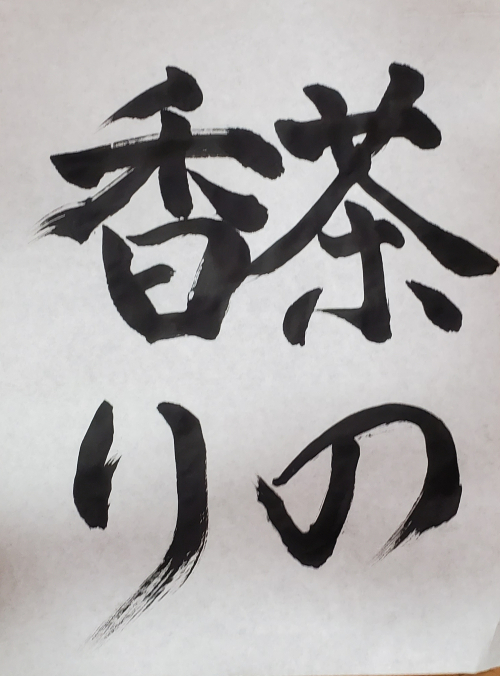 茶の
香り